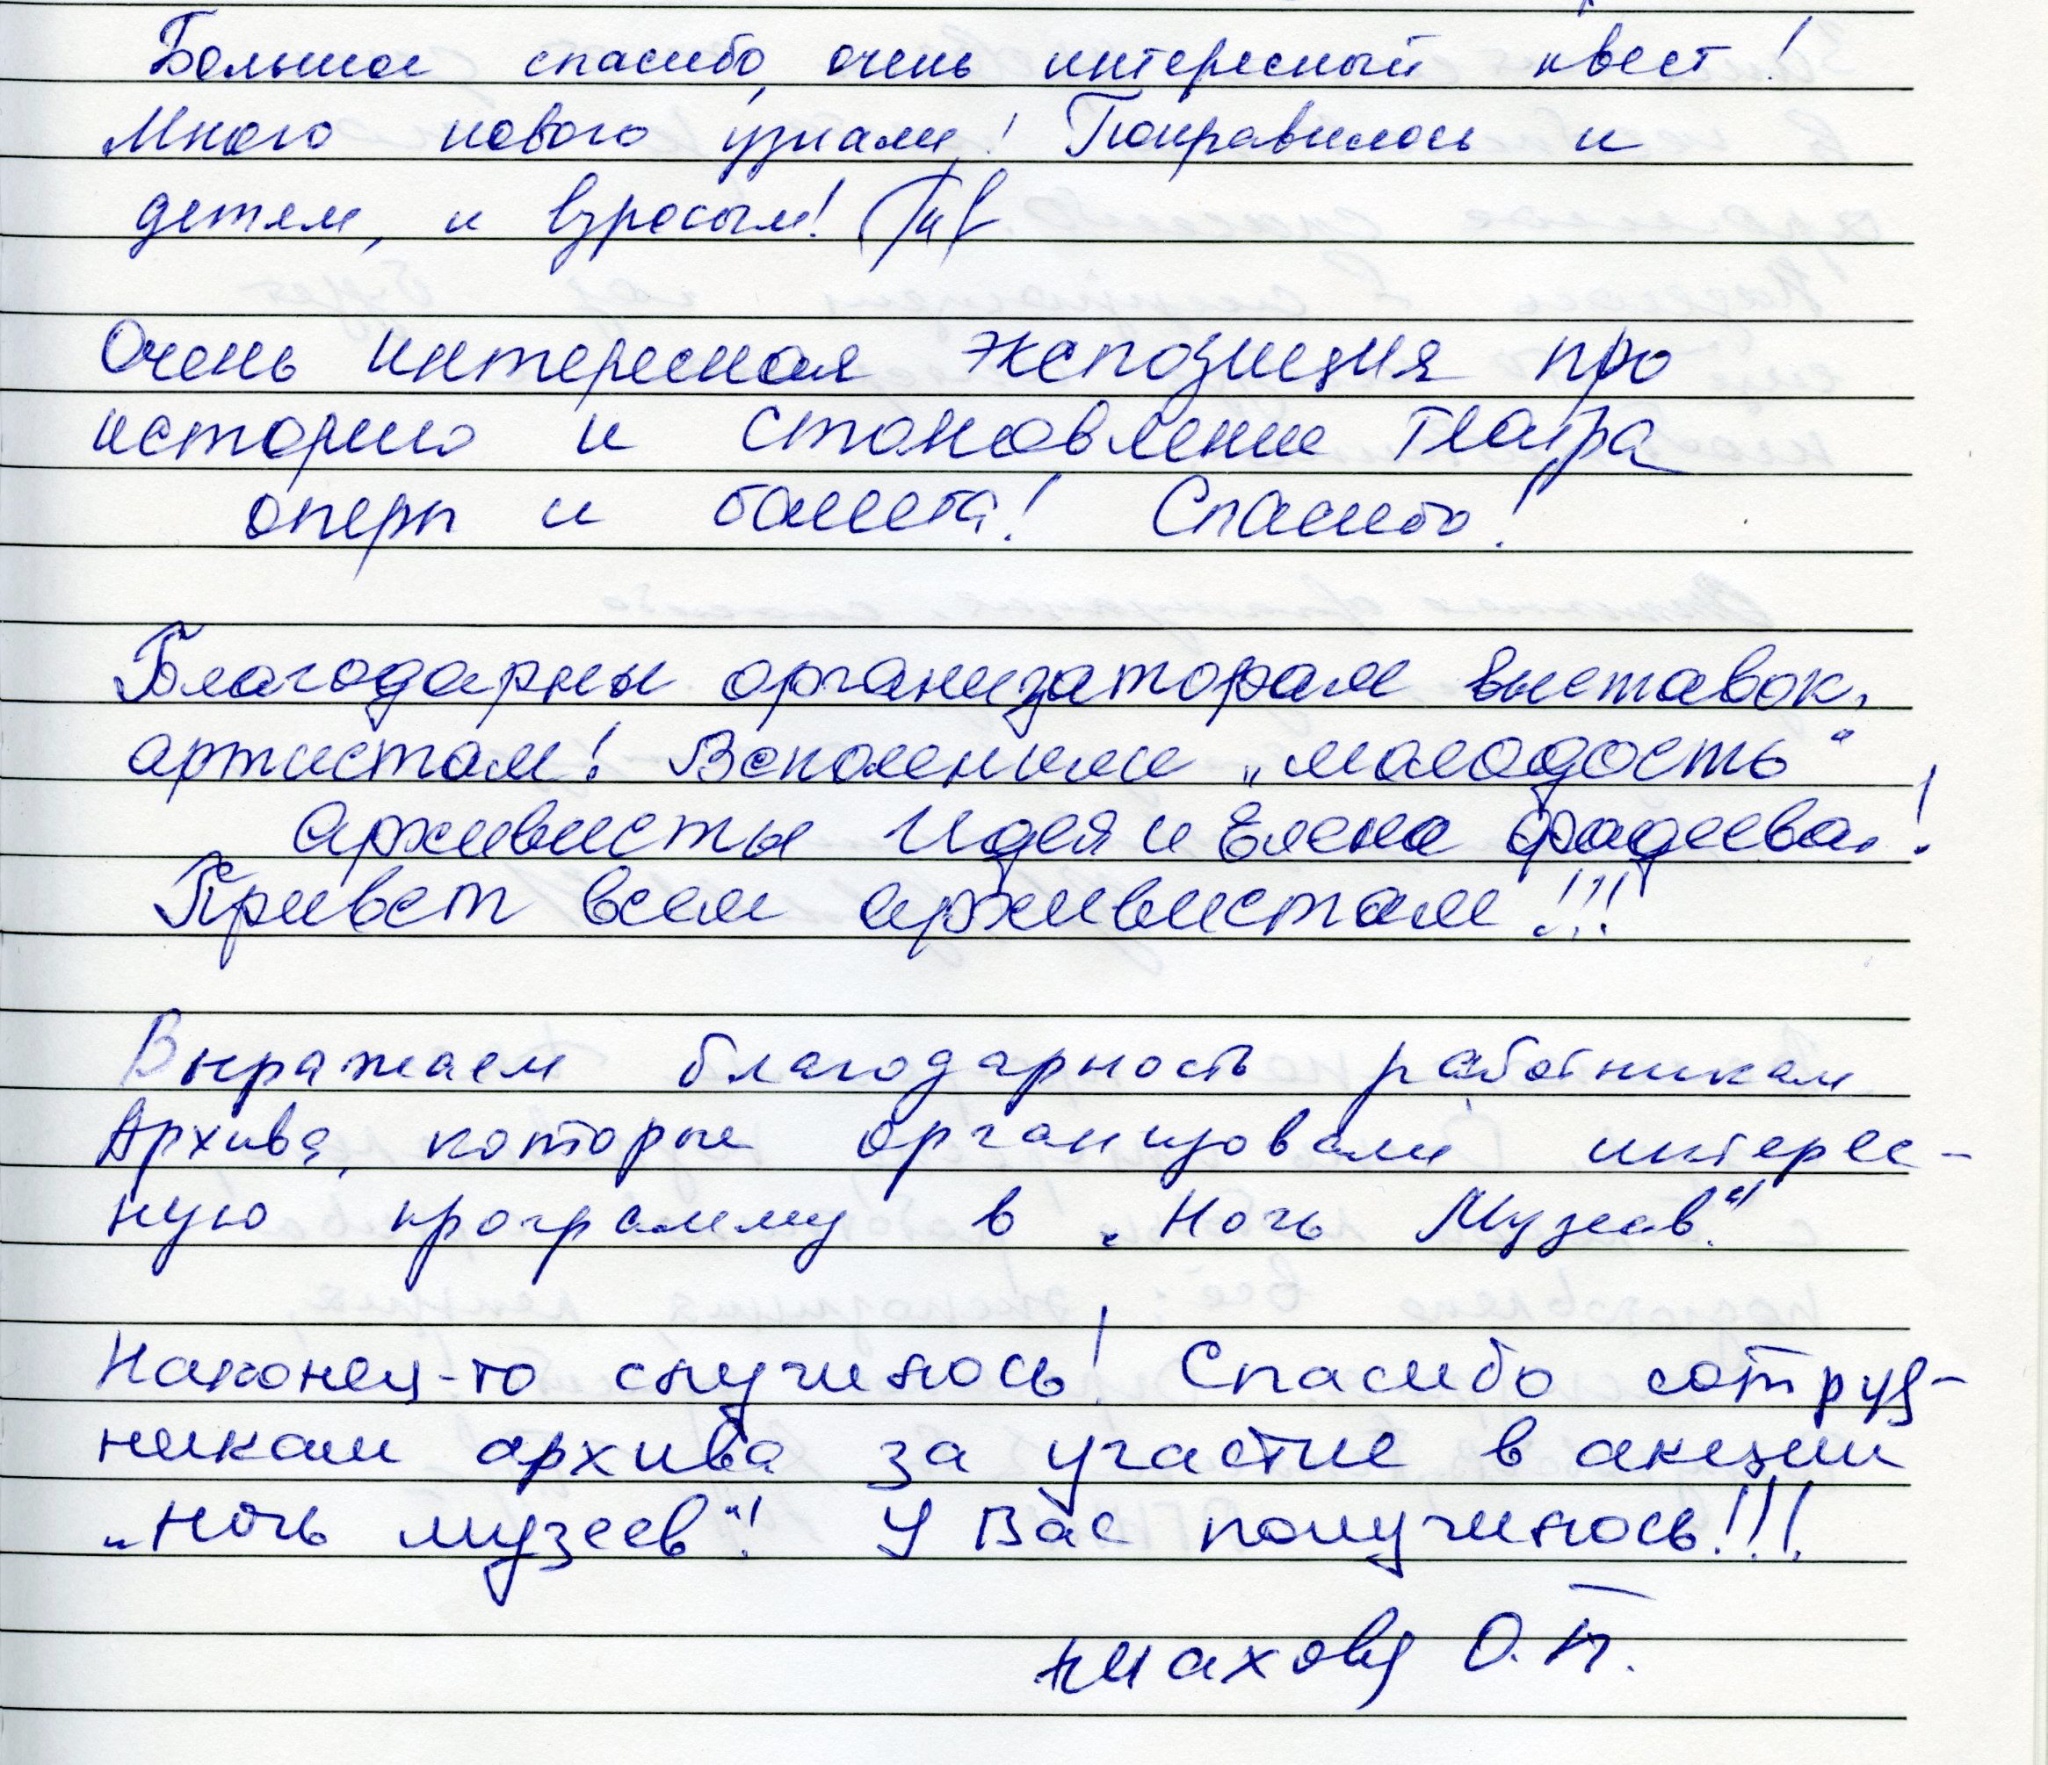 Большое спасибо, очень интересный квест!
Много нового узнали! Понравилось и
детям, и взрослым!
Очень интересная экспозиция про
историю и становление театра
оперы и балета! Спасибо!
Благодарны организаторам выставок,
артистам! Вспомнили „молодость“
Архивисты Идея и Елена Фадеева!
Привет всем архивистам!!!
Выражаем благодарность работникам
Архива, которые организовали интерес-
ную программу в „Ночь Музеев“.
Наконец-то случилось! Спасибо сотруд-
никам архива за участие в акции
„Ночь музеев“! У Вас получилось!!!
О.П.